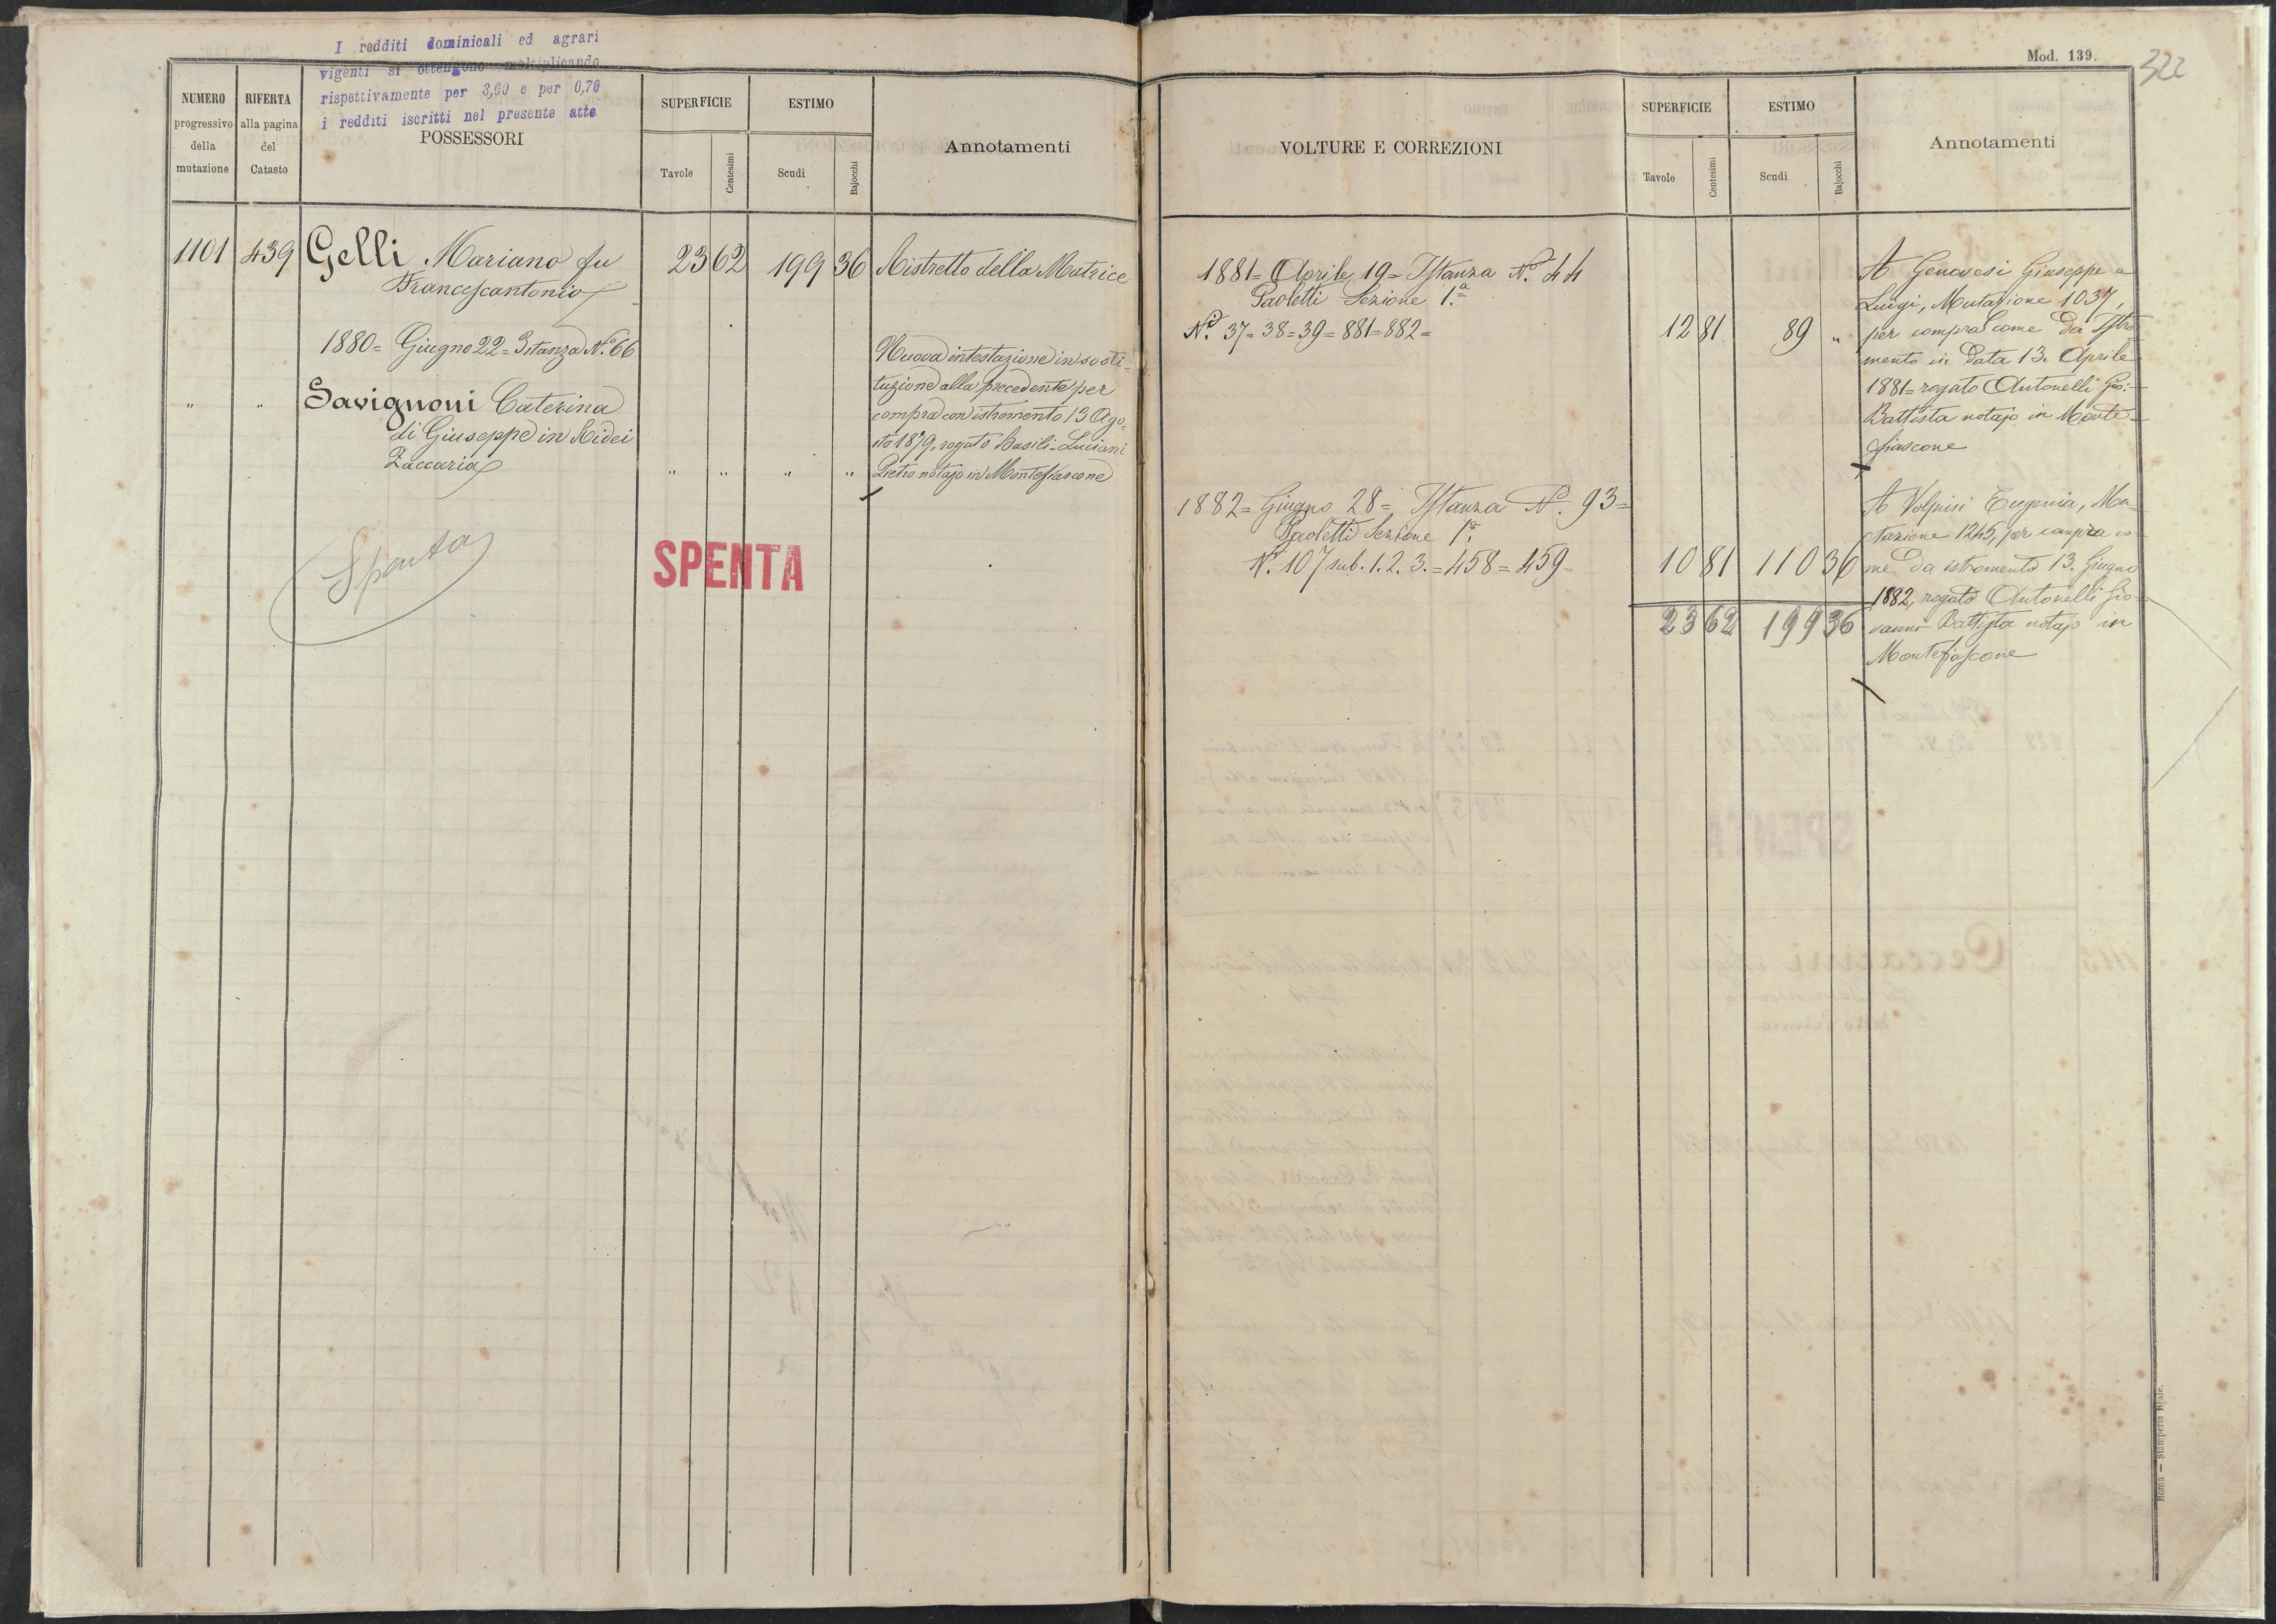 I redditi dominicali ed agrari
vigenti si ottengono moltiplicando
rispettivamente per 3,60 e per 0,70
i redditi iscritti nel presente atto.
NUMERO
progressivo
della
mutazione
RIFERTA
alla pagina
del
Catasto
POSSESSORI
SUPERFICIE
Tavole
Centesimi
ESTIMO
Scudi
Bajocchi
Annotamenti
1101 439 Gelli Mariano fu 23 62 199 36 Ristretto della Matrice
Francescantonio
1880 = Giugno 22 = Istanza N.° 66
Nuova intestazione in sosti=
tuzione alla precedente per
" " Savignoni Caterina
compra con istromento 13 Ago=
di Giuseppe in Ridei
sto 1879, rogato Basili-Luciani
Zaccaria " " " " Pietro notajo in Montefiascone
Spenta
SPENTA
Mod. 139.
322
VOLTURE E CORREZIONI
SUPERFICIE
Tavole
Centesimi
ESTIMO
Scudi
Bajocchi
Annotamenti
1881 = Aprile 19 = Istanza N.° 44
Paoletti Sezione 1.ª
N.i 37 = 38 = 39 = 881 = 882 = 12 81 89 "
A Genovesi Giuseppe e
Luigi, Mutazione 1037,
per compra come da Istro
mento in data 13. Aprile
1881 = rogato Antonelli Gio:=
Battista notajo in Monte=
fiascone
1882 = Giugno 28 = Istanza N. 93 =
Paoletti Sezione 1ª
N. 107 sub. 1. 2. 3. = 458 = 459 = 10 81 110 36
23 62 199 36
A Volpini Eugenia, Mu=
tazione 1245, per compra co=
me da istromento 13. Giugno
1882, rogato Antonelli Gio=
vanni Battista notajo in
Montefiascone
Roma — Stamperia Reale.